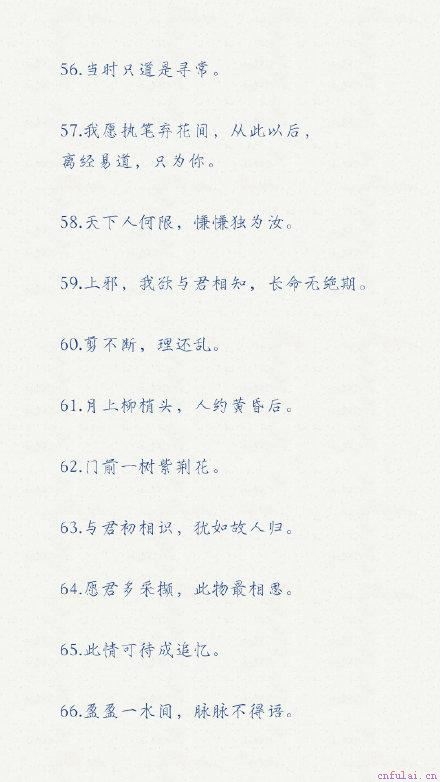 56.当时只道是寻常。
57.我愿执笔弃花间，从此以后，
离经易道，只为你。
58.天下人何限，慊慊独为汝。
59.上邪，我欲与君相知，长命无绝期。
60.剪不断，理还乱。
61.月上柳梢头，人约黄昏后。
62.门前一树紫荆花。
63.与君初相识，犹如故人归。
64.愿君多采撷，此物最相思。
65.此情可待成追忆。
66.盈盈一水间，脉脉不得语。
cnfulai.cn